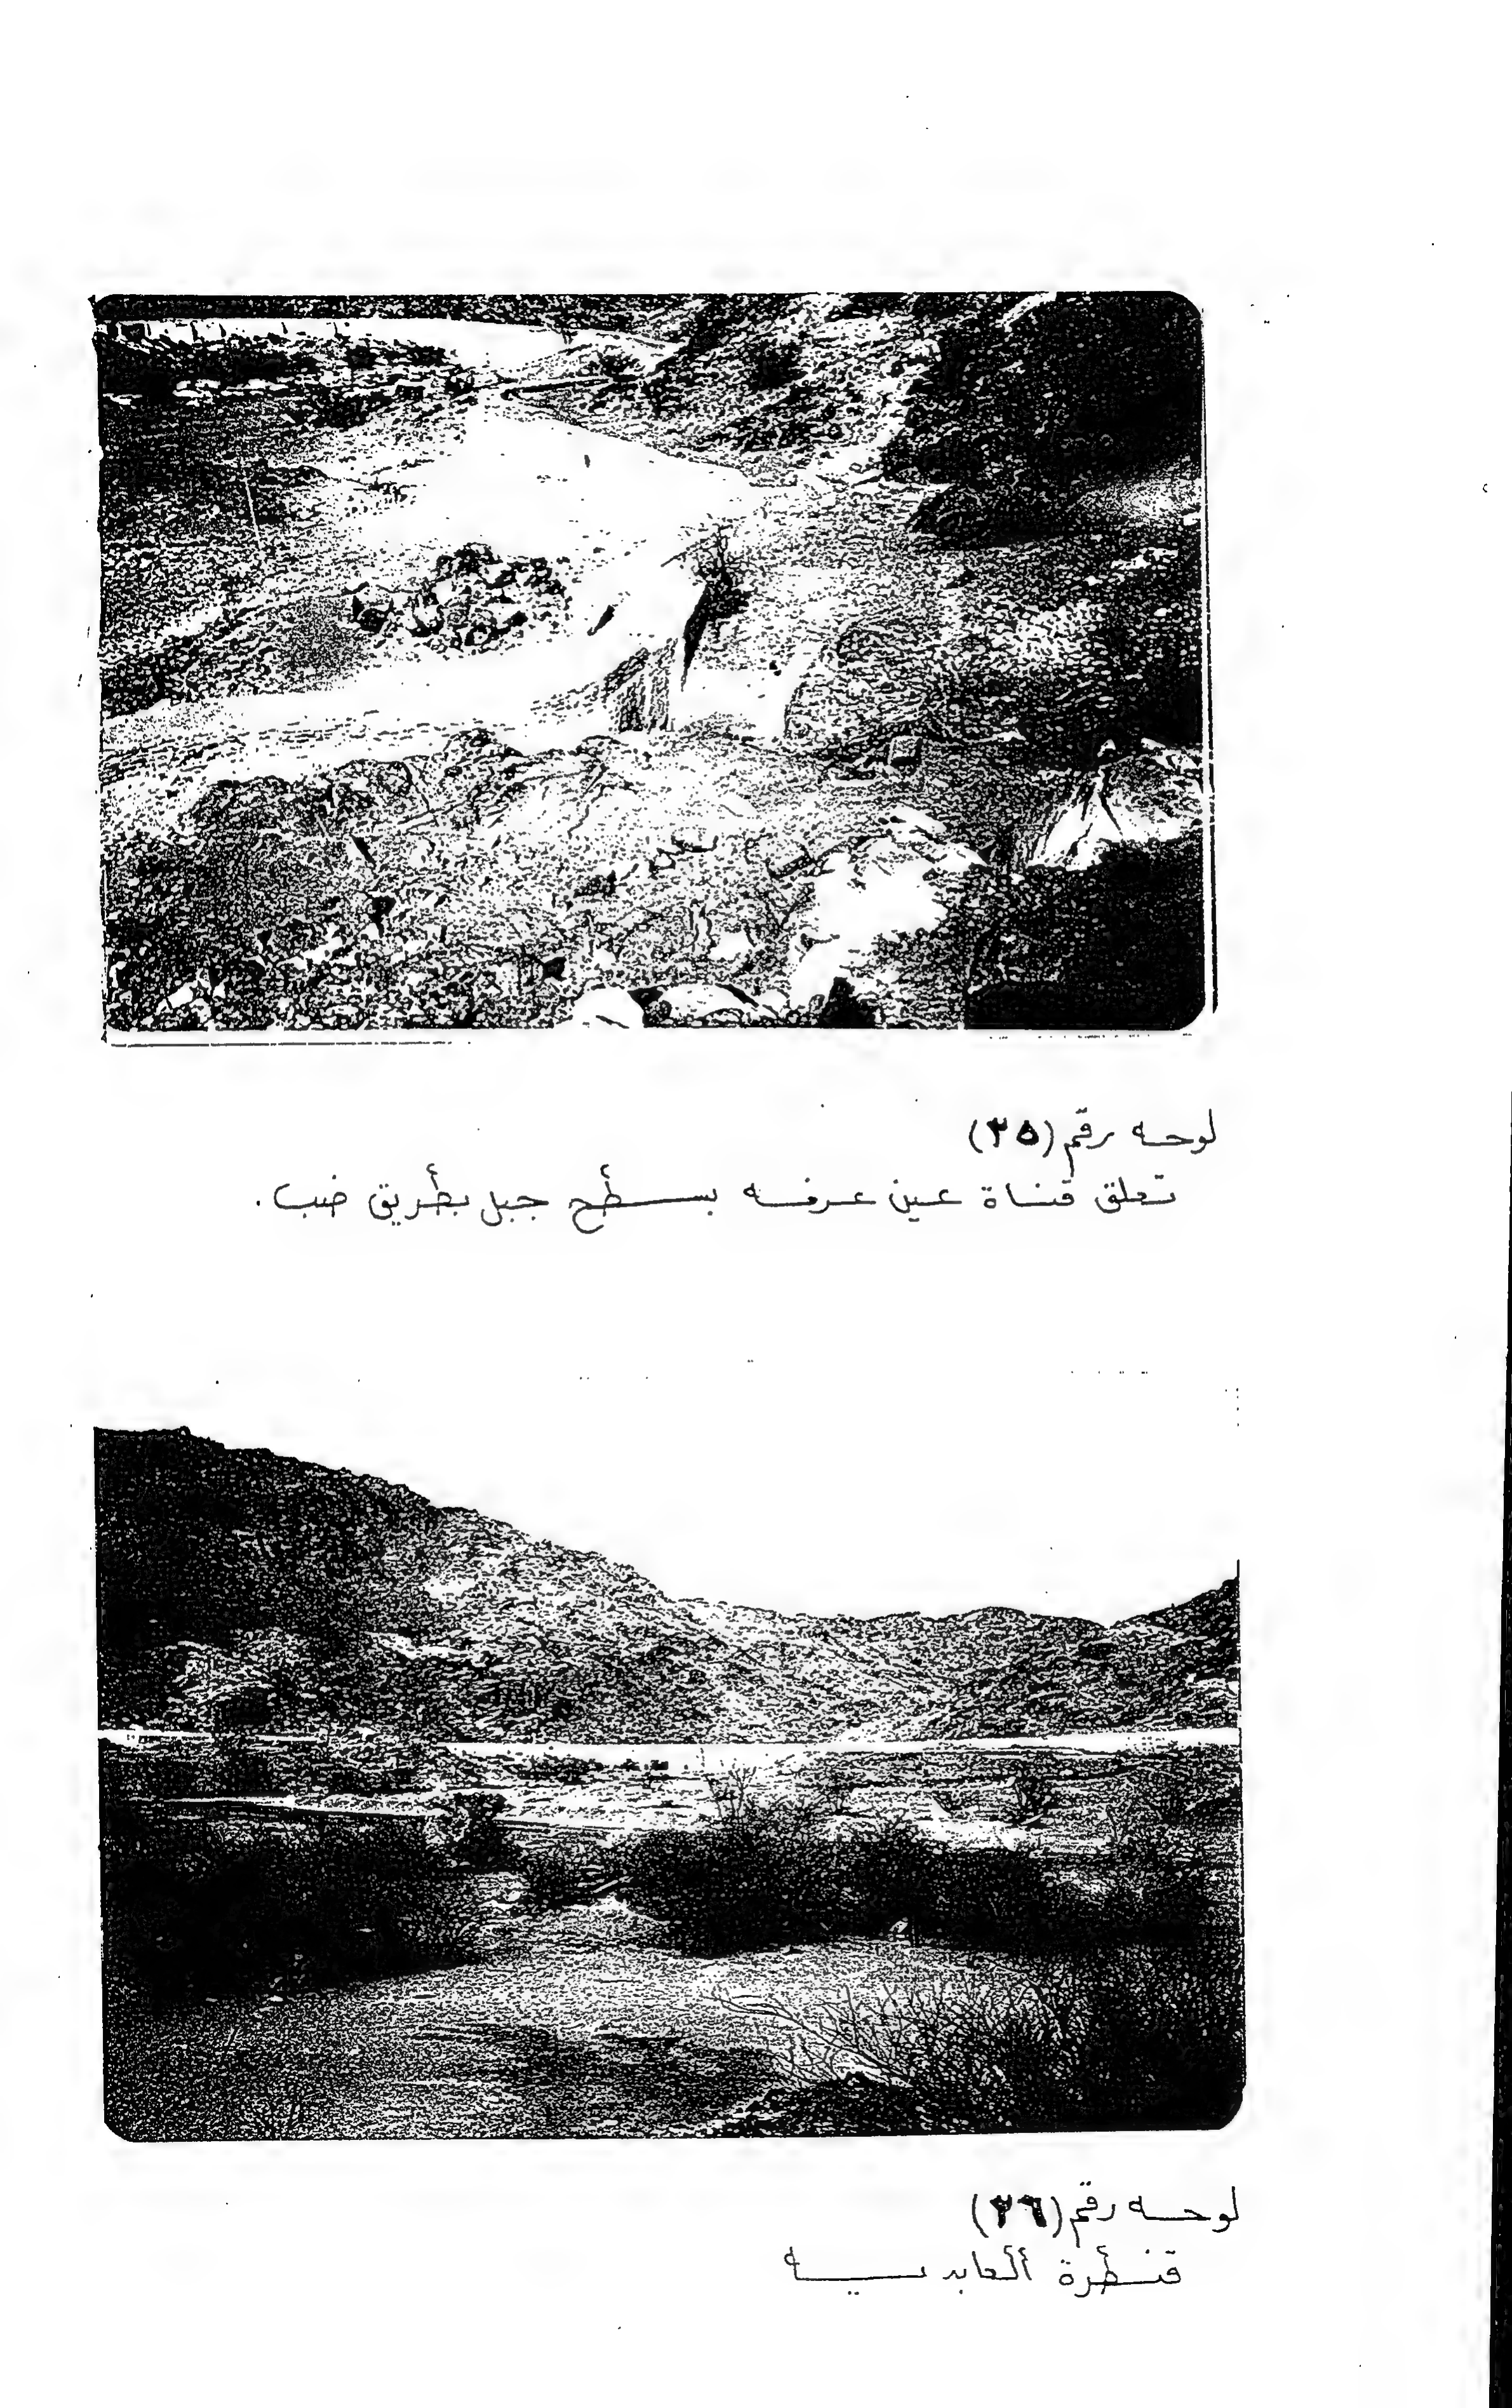 لوحه رقم (٣٥)
تعلق قناة عين عرفه بسطح جبل بطريق ضب .
لوحه رقم (٣٦)
قنطرة العابديه